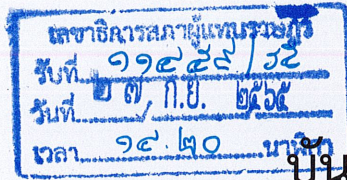 เลขาธิการสภาผู้แทนราษฎร
รับที่
วันที่ ๒๗ ก.ย. ๒๕๖๕
เวลา ๑๔.๒๐ นาฬิกา
บัน